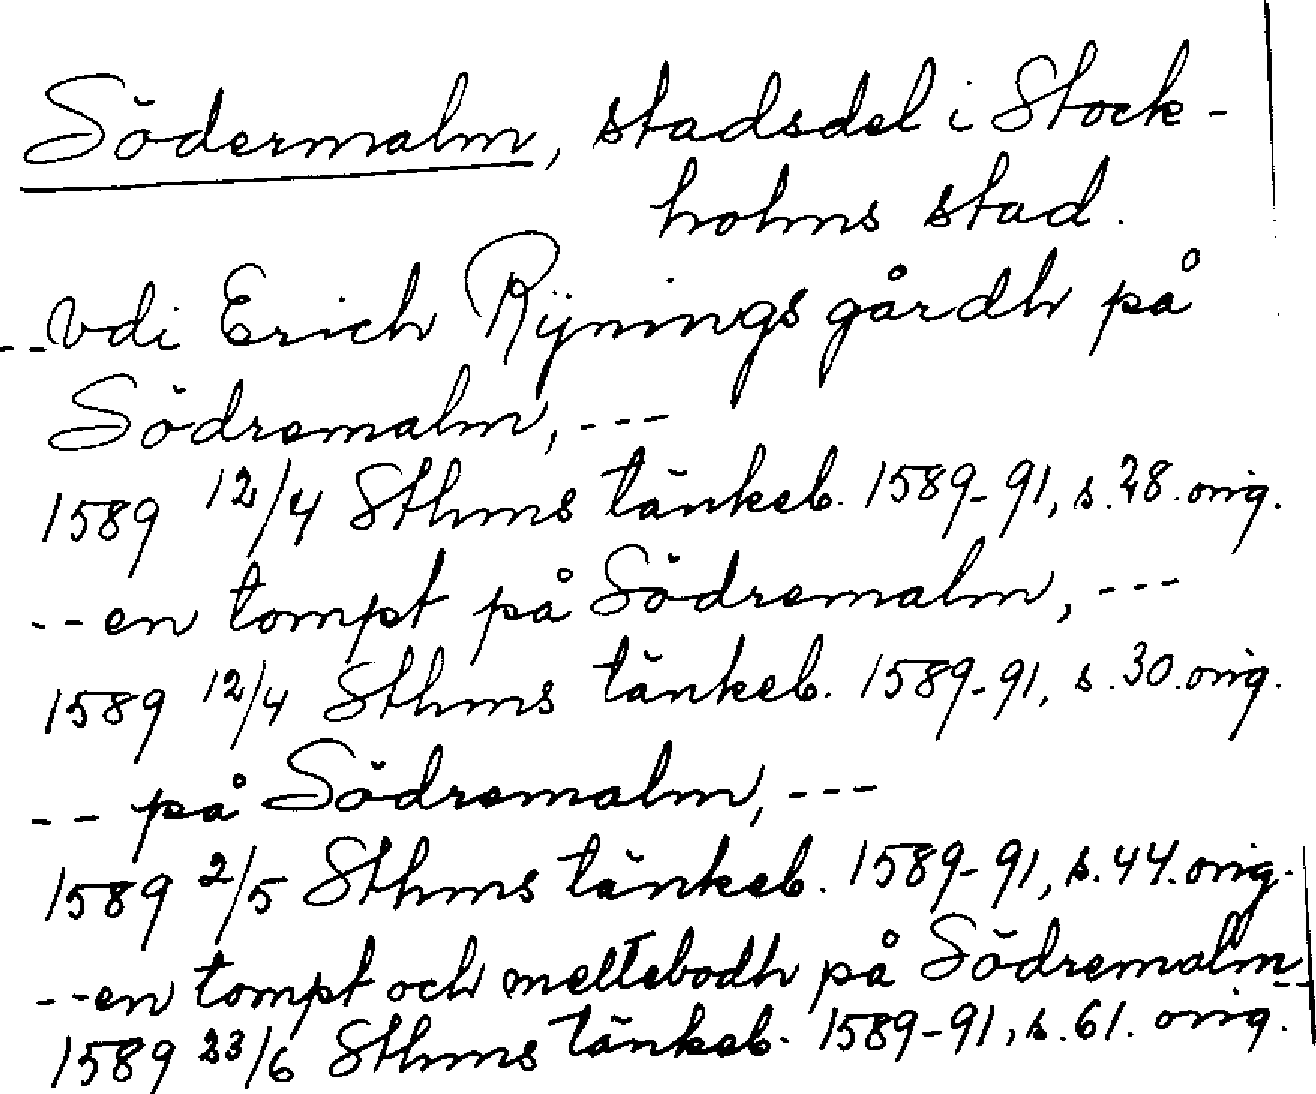 Södermalm, stadsdel i Stock-
holms stad.
--vdi Erich Rÿnings gårdh på
Södremalm, ---
1589 12/4 Sthms tänkeb. 1589-91, s. 28. orig.
--en tompt på Södremalm, ---
1589 12/4 Sthms tänkeb. 1589-91, s. 30. orig.
-- på Södremalm, ---
1589 2/5 Sthms tänkeb. 1589-91, s. 44. orig.
--en tompt och meltebodh på Södremalm--
1589 23/6 Sthms tänkeb. 1589-91, s. 61. orig.